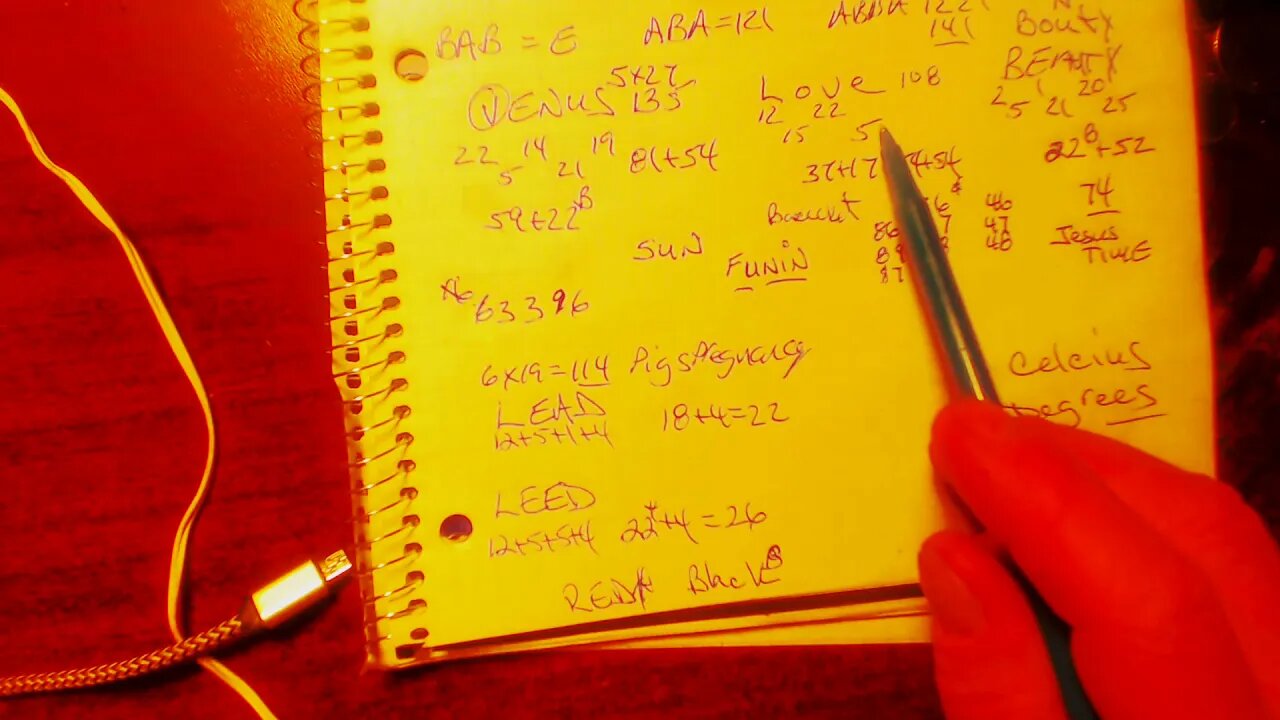 BAB = E ABA = 121 ABBA 1221
141 Bouty
BEAUTY
VENUS 5x27
135
Love 108
12 22
15 5
2 1 20
5 21 25
22 14 19
5 21
81+54
59+22 B
37+17 54
22 B +52
74
Jesus
TIME
46
47
48
86
89
87
SUN
FUNiN
63396
6x19=114 Pigs Pregnancy
LEAD
12+5+1+4 18+4=22
Celcius
Degrees
LEED
12+5+5+4 22+4=26
RED Black B